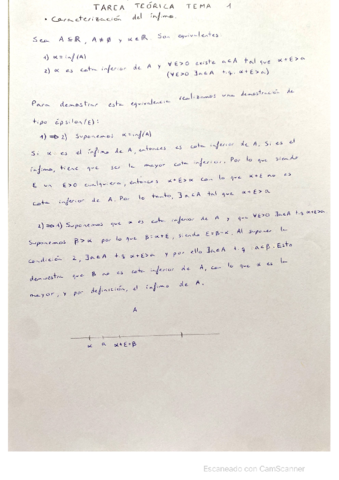 TAREA TEÓRICA TEMA 1
• Caracterización del ínfimo.
Sea A⊆ℝ, A≠∅ y α∈ℝ. Son equivalentes:
1) α=inf(A)
2) α es cota inferior de A y ∀ε>0 existe a∈A tal que α+ε>a
(∀ε>0 ∃a∈A t.q. α+ε>a)
Para demostrar esta equivalencia realizamos una demostración de
tipo épsilon(ε):
1)⇒2) Suponemos α=inf(A)
Si α es el ínfimo de A, entonces es cota inferior de A. Si es el
ínfimo, tiene que ser la mayor cota inferior. Por lo que siendo
ε un ε>0 cualquiera, entonces α+ε>α con lo que α+ε no es
cota inferior de A. Por lo tanto, ∃a∈A tal que α+ε>a
2)⇒1) Suponemos que α es cota inferior de A y que ∀ε>0 ∃a∈A t.q. α+ε>a
Suponemos β>α por lo que β=α+ε, siendo ε=β-α. Al suponer la
condición 2, ∃a∈A t.q. α+ε>a y por ello ∃a∈A t.q. a<β. Esto
demuestra que β no es cota inferior de A, con lo que α es la
mayor, y por definición, el ínfimo de A.
A
α a α+ε=β
Escaneado con CamScanner